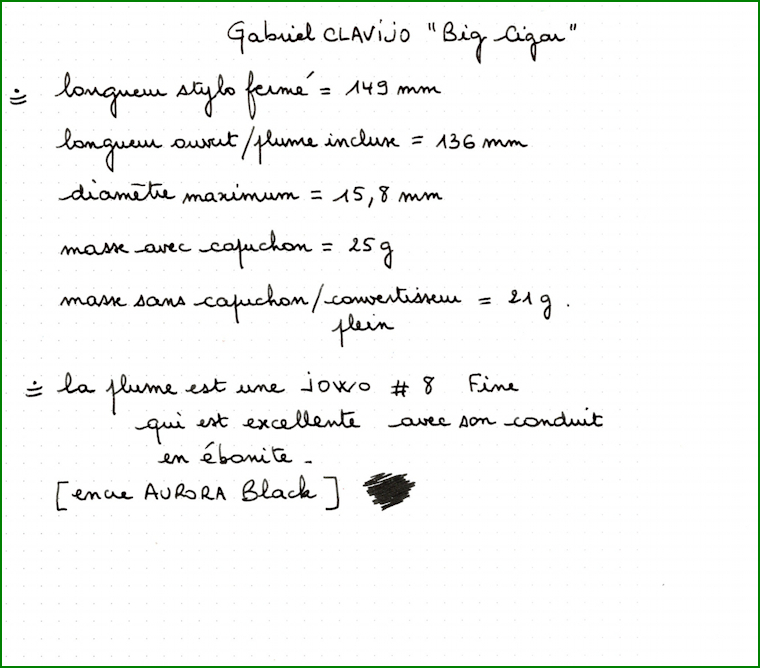 Gabriel CLAVIJO "Big Cigar"
longueur stylo fermé = 149 mm
longueur ouvert/plume incluse = 136 mm
diamètre maximum = 15,8 mm
masse avec capuchon = 25g
masse sans capuchon/convertisseur = 21g.
plein
la plume est une JOWO # 8 Fine
qui est excellente avec son conduit
en ébonite.
[encre AURORA Black]